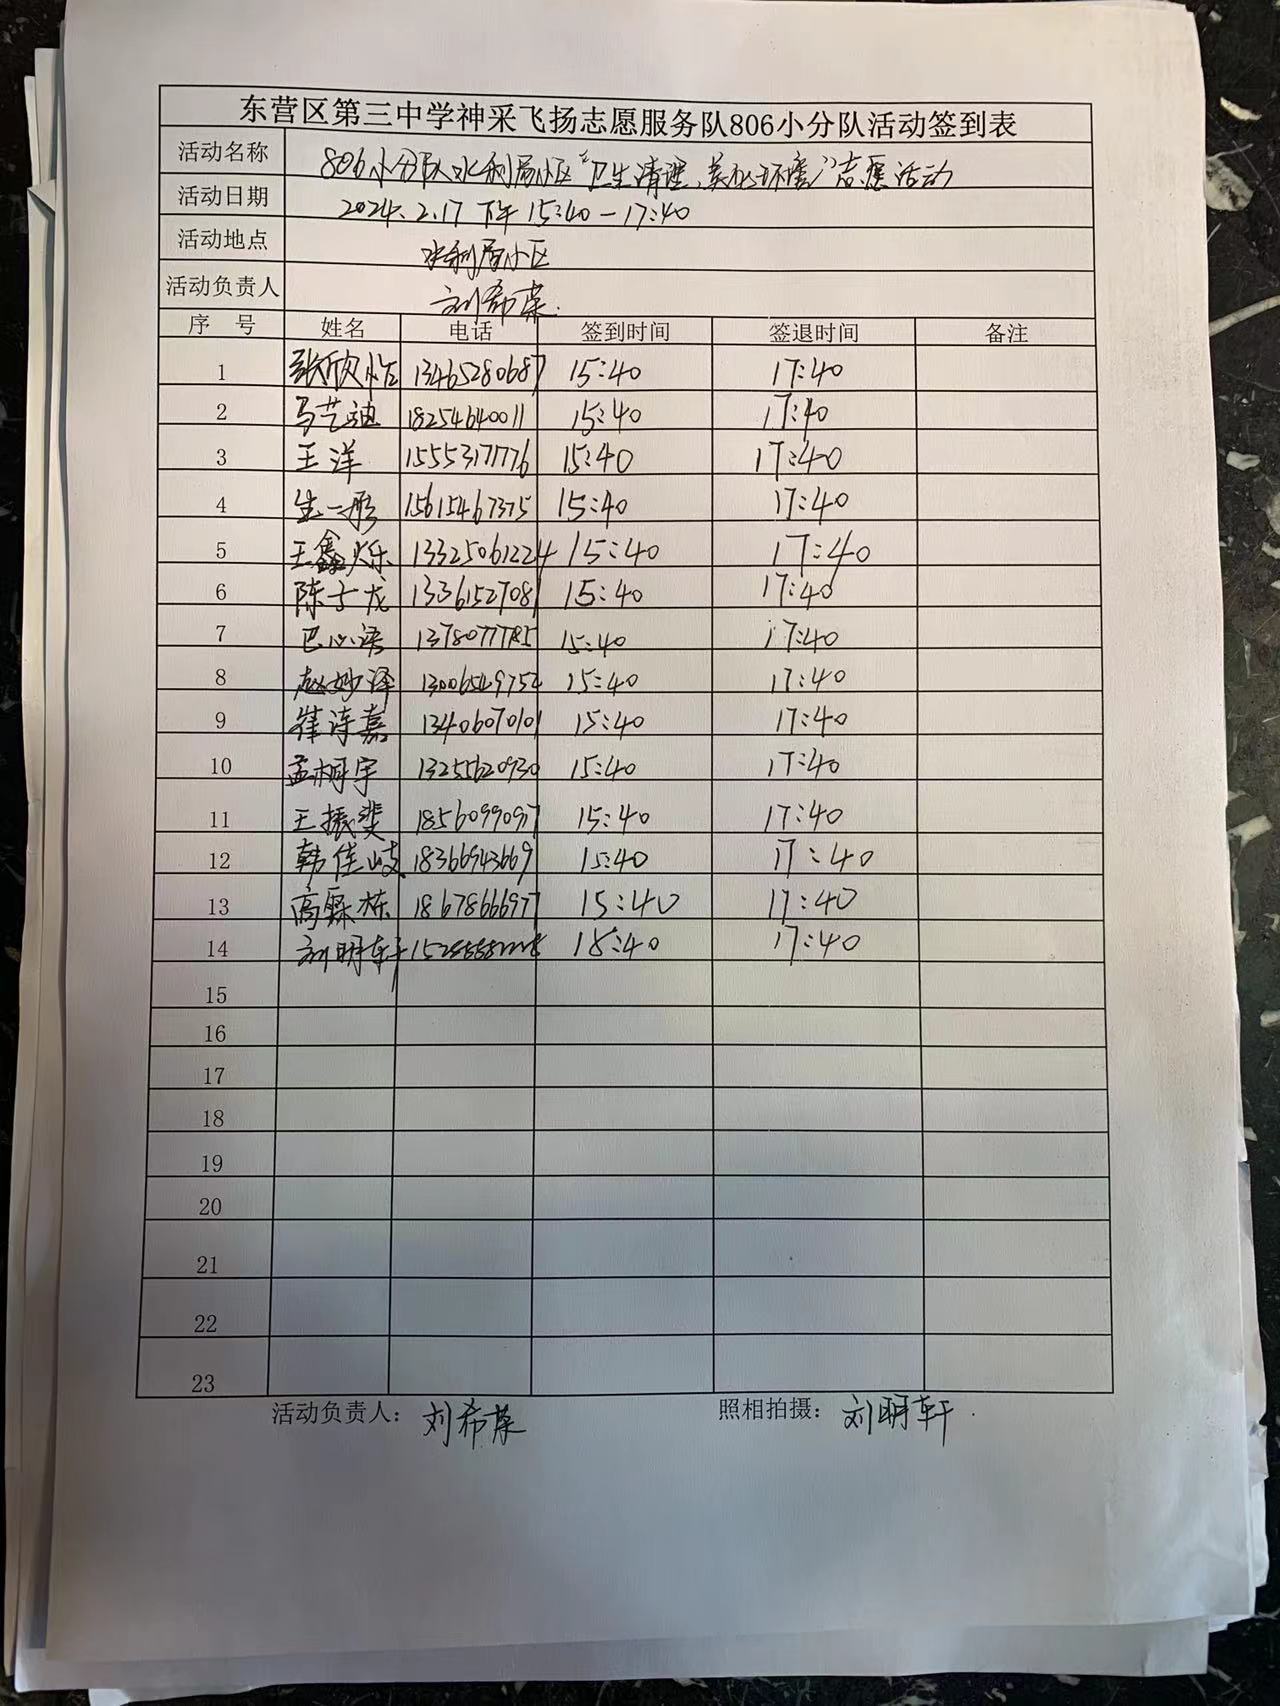 东营区第三中学神采飞扬志愿服务队806小分队活动签到表
活动名称 806小分队水利局小区“卫生清理、美化环境”志愿活动
活动日期 2024.2.17 下午 15:40—17:40
活动地点 水利局小区
活动负责人 刘希荣
序 号 姓名 电话 签到时间 签退时间 备注
1 张欣怡 13465280687 15:40 17:40
2 马艺迪 18254640011 15:40 17:40
3 王洋 15553171776 15:40 17:40
4 生一彤 15615467375 15:40 17:40
5 王鑫烁 13325061224 15:40 17:40
6 陈子龙 13361527081 15:40 17:40
7 巴心语 13780777785 15:40 17:40
8 赵妙泽 13006549754 15:40 17:40
9 崔涛嘉 13406070101 15:40 17:40
10 孟桐宇 13255620930 15:40 17:40
11 王振斐 18560990977 15:40 17:40
12 韩佳岐 18366943669 15:40 17:40
13 高霖栋 18678666977 15:40 17:40
14 刘明轩 15:40 17:40
15
16
17
18
19
20
21
22
23
活动负责人： 刘希荣 照相拍摄： 刘明轩